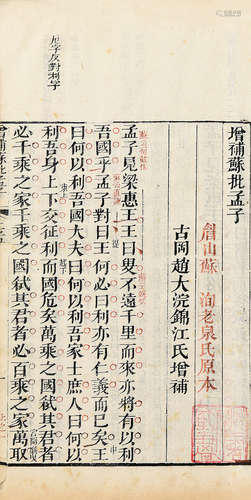 增補蘇批孟子
眉山蘇 洵老泉氏原本
古岡趙大浣錦江氏增補
孟子見梁惠王王曰叟不遠千里而來亦將有以利
吾國乎孟子對曰王何必曰利亦有仁義而已矣王
曰何以利吾國大夫曰何以利吾家士庶人曰何以
利吾身上下交征利而國危矣萬乘之國弒其君者
必千乘之家千乘之國弒其君者必百乘之家萬取
增補蘇批孟子